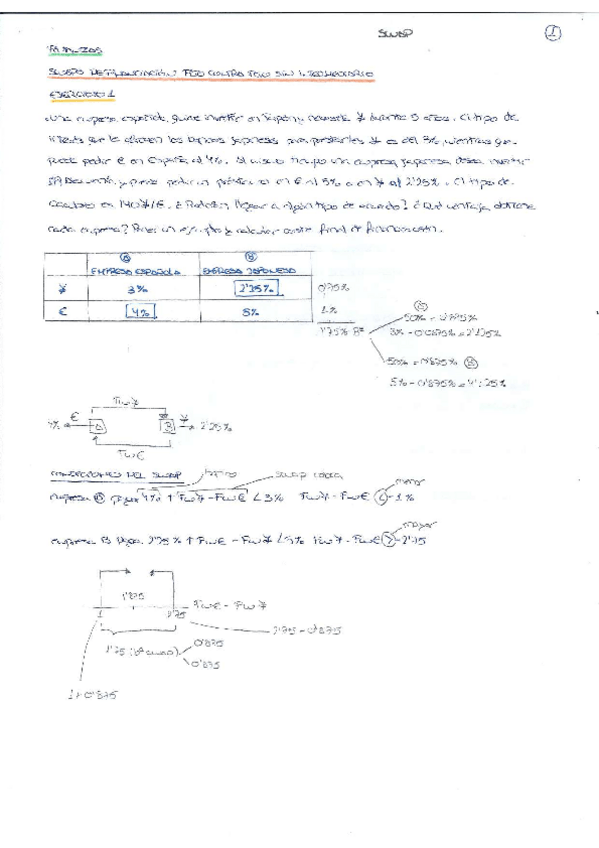 SWAP
1
FINANZAS
SWAPS DE FINANCIACIÓN FIJO CONTRA FIJO SIN INTERMEDIARIO
EJERCICIO 1
Una empresa española, quiere invertir en Japón y necesita ¥ durante 5 años. El tipo de
interés que le ofrecen los bancos japoneses para prestarles ¥ es del 3%, mientras que
puede pedir € en España al 4%. Al mismo tiempo una empresa japonesa desea invertir
y puede pedir un préstamo en € al 5% o en ¥ al 2'25%. El tipo de
cambio es 140 ¥/€. ¿Podrían llegar a algún tipo de acuerdo? ¿Qué ventaja obtiene
cada empresa? Poner un ejemplo y calcular coste final de financiación.
A B
EMPRESA ESPAÑOLA EMPRESA JAPONESA
¥ 3% 2'25% 0'75%
€ 4% 5% 1%
1'75% Bº
A
50% = 0'875%
3% - 0'875% = 2'125%
50% = 0'875% B
5% - 0'875% = 4'125%
Fw¥
4% € A B ¥ 2'25%
Fw€
CONDICIONES DEL SWAP
Empresa A paga 4% + Fw¥ - Fw€ < 3% Fw¥ - Fw€ < -1%
menor
Empresa B paga 2'25% + Fw€ - Fw¥
mayor
1'875
1 2'75 Fw€ - Fw¥
2'75 - 0'875
1'75 0'875
0'875
1 + 0'875